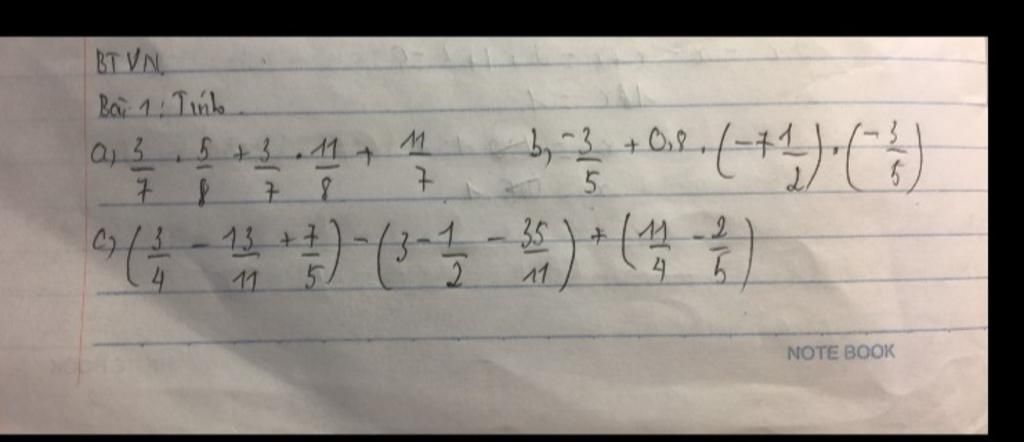 BTVN
Bài 1: Tính.
a, 3/7 . 5/8 + 3/7 . 11/8 + 11/7 b, -3/5 + 0,8 . (-7 1/2) . (-3/5)
c, (3/4 - 13/11 + 7/5) - (3 - 1/2 - 35/11) + (11/4 - 2/5)
NOTE BOOK